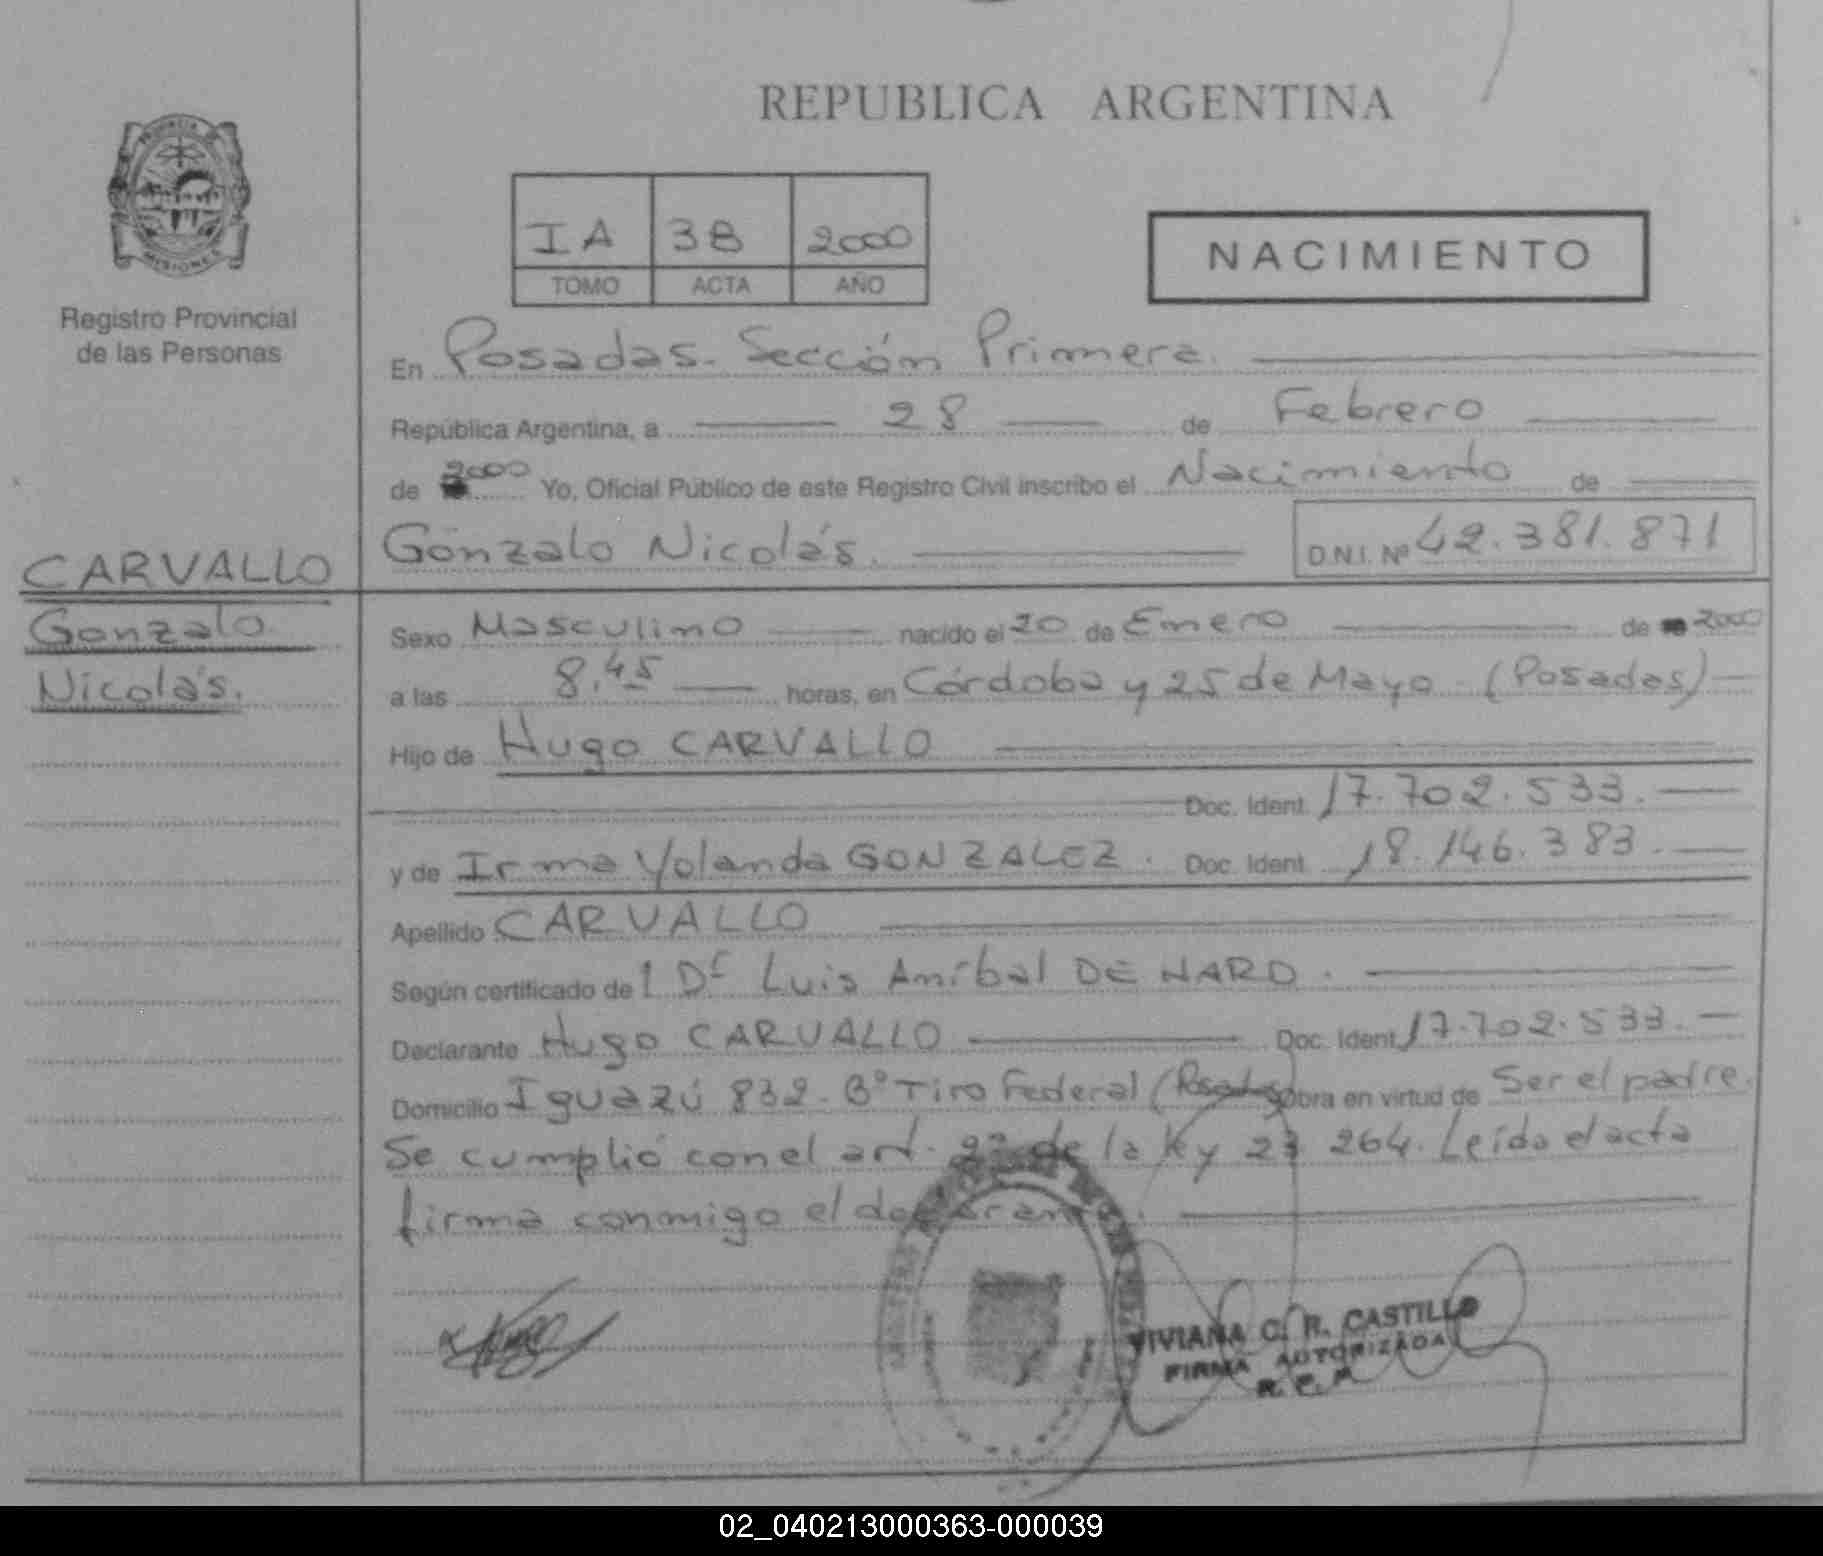 REPUBLICA ARGENTINA
PROVINCIA DE
MISIONES
Registro Provincial
de las Personas
IA 38 2000
TOMO ACTA AÑO
NACIMIENTO
En Posadas. Sección Primera.
República Argentina, a 28 de Febrero
de 2000 Yo, Oficial Público de este Registro Civil inscribo el Nacimiento de
Gonzalo Nicolás. D.N.I. Nº 42.381.871
CARVALLO
Gonzalo
Nicolás.
Sexo Masculino nacido el 20 de Enero de 2000
a las 8,45 horas, en Córdoba y 25 de Mayo (Posadas)
Hijo de Hugo CARVALLO
Doc. Ident. 17.702.533.
y de Irma Yolanda GONZALEZ. Doc. Ident. 18.146.383.
Apellido CARVALLO
Según certificado del Dr Luis Aníbal DE NARD.
Declarante Hugo CARVALLO Doc. Ident. 17.702.533.
Domicilio Iguazú 832. Bº Tiro Federal (Posadas) Obra en virtud de Ser el padre.
Se cumplió con el art. de la ley 23 264. Leída el acta
firma conmigo el declarante.
VIVIANA C. R. CASTILLO
FIRMA AUTORIZADA
R. P. P.
02_040213000363-000039